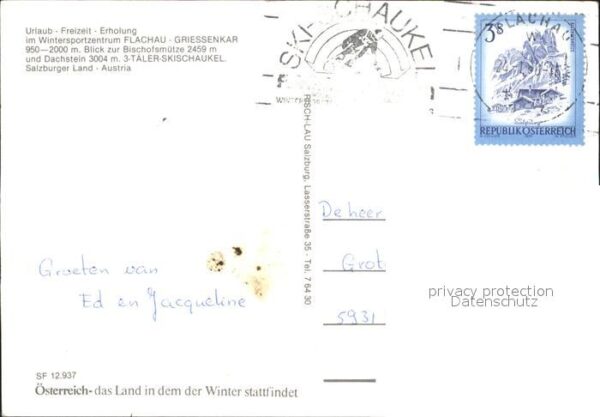 Urlaub - Freizeit - Erholung
im Wintersportzentrum FLACHAU - GRIESSENKAR
950—2000 m. Blick zur Bischofsmütze 2459 m
und Dachstein 3004 m. 3-TÄLER-SKISCHAUKEL.
Salzburger Land - Austria
SKI-SCHAUKEL
FLACHAU
3S
REPUBLIK ÖSTERREICH
RISCH-LAU Salzburg, Lasserstraße 35 - Tel. 7 64 30
De heer
Grot
5931
privacy protection
Datenschutz
Groeten van
Ed en Jacqueline
SF 12.937
Österreich - das Land in dem der Winter stattfindet